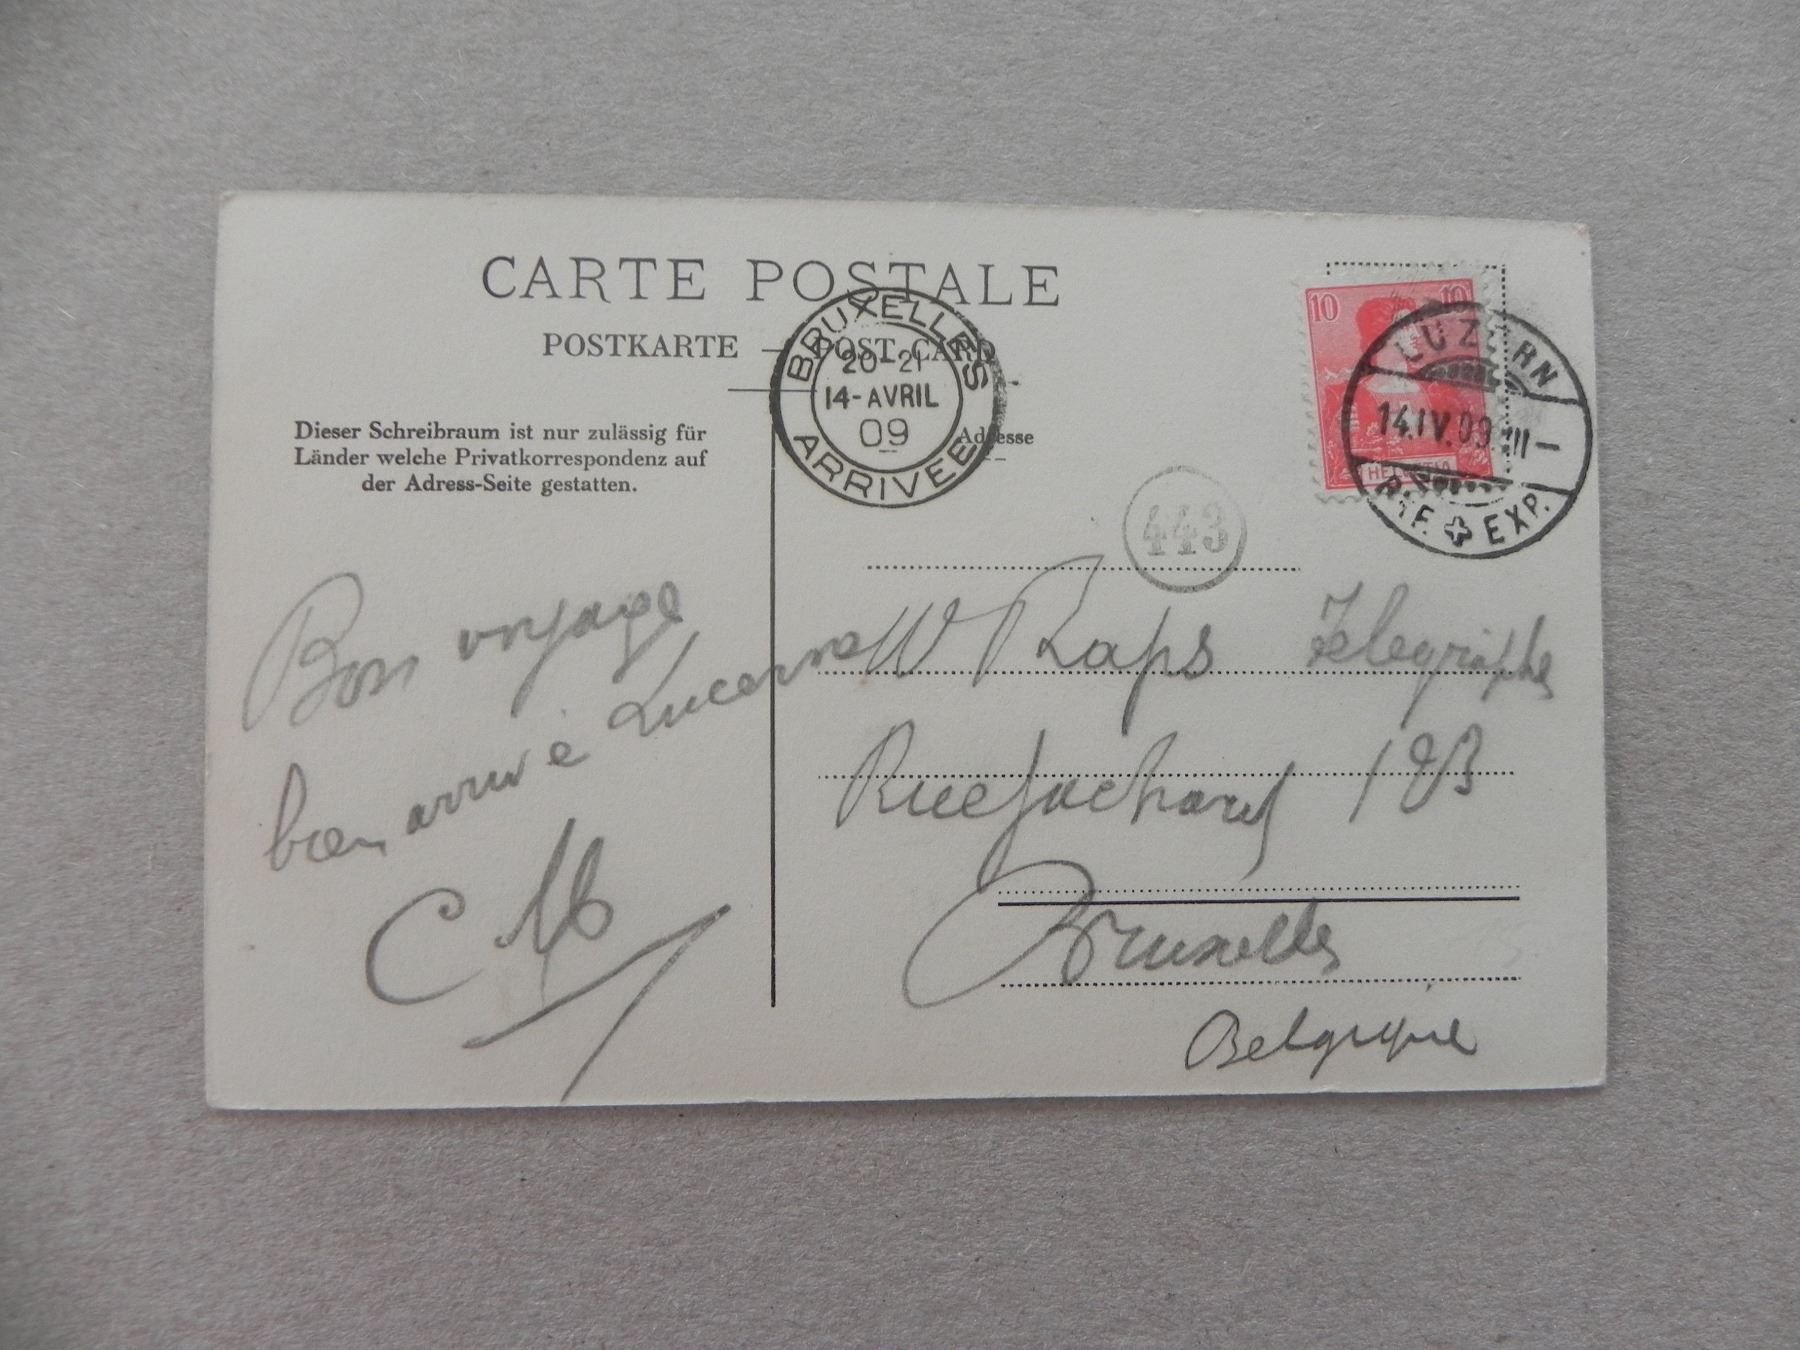 CARTE POSTALE
POSTKARTE — POST-CARD
Dieser Schreibraum ist nur zulässig für
Länder welche Privatkorrespondenz auf
der Adress-Seite gestatten.
Adresse
BRUXELLES
20-21
14-AVRIL
09
ARRIVEE
10 10
HELVETIA
LUZERN
14.IV.09 III–
EXP.
443
Bon voyage
bon arrivé Lucerne
C
Raps Telegraphe
Rue
Bruxelles
Belgique